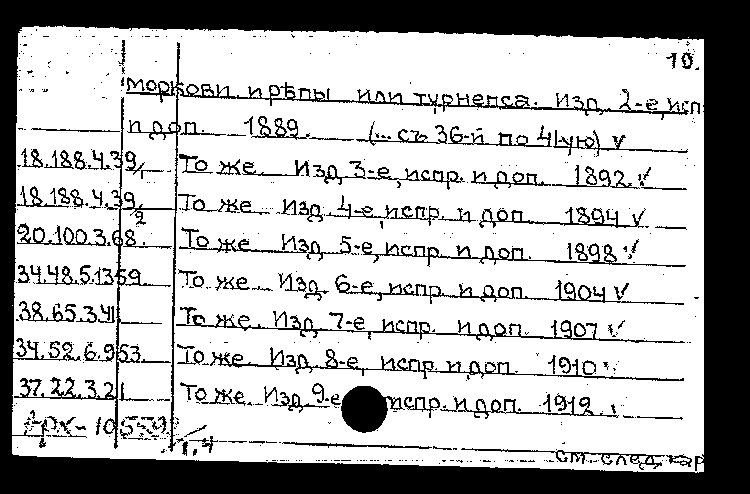 10.
моркови и рѣпы или турнепса. Изд. 2-е, исп
и доп. 1889. (... съ 36-й по 41-ую) v
18.188.4.39/1 То же. Изд. 3-е, испр. и доп. 1892 v
18.188.4.39/2 То же. Изд. 4-е, испр. и доп. 1894 v
20.100.3.68. То же. Изд. 5-е, испр. и доп. 1898 v
34.48.5.1359. То же. Изд. 6-е, испр. и доп. 1904 v
38.65.3.41 То же. Изд. 7-е, испр. и доп. 1907 v
34.52.6.953. То же. Изд. 8-е, испр. и доп. 1910 v
37.22.3.21 То же. Изд. 9-е испр. и доп. 1912.
Арх- 10559
1,4
см. след. кар